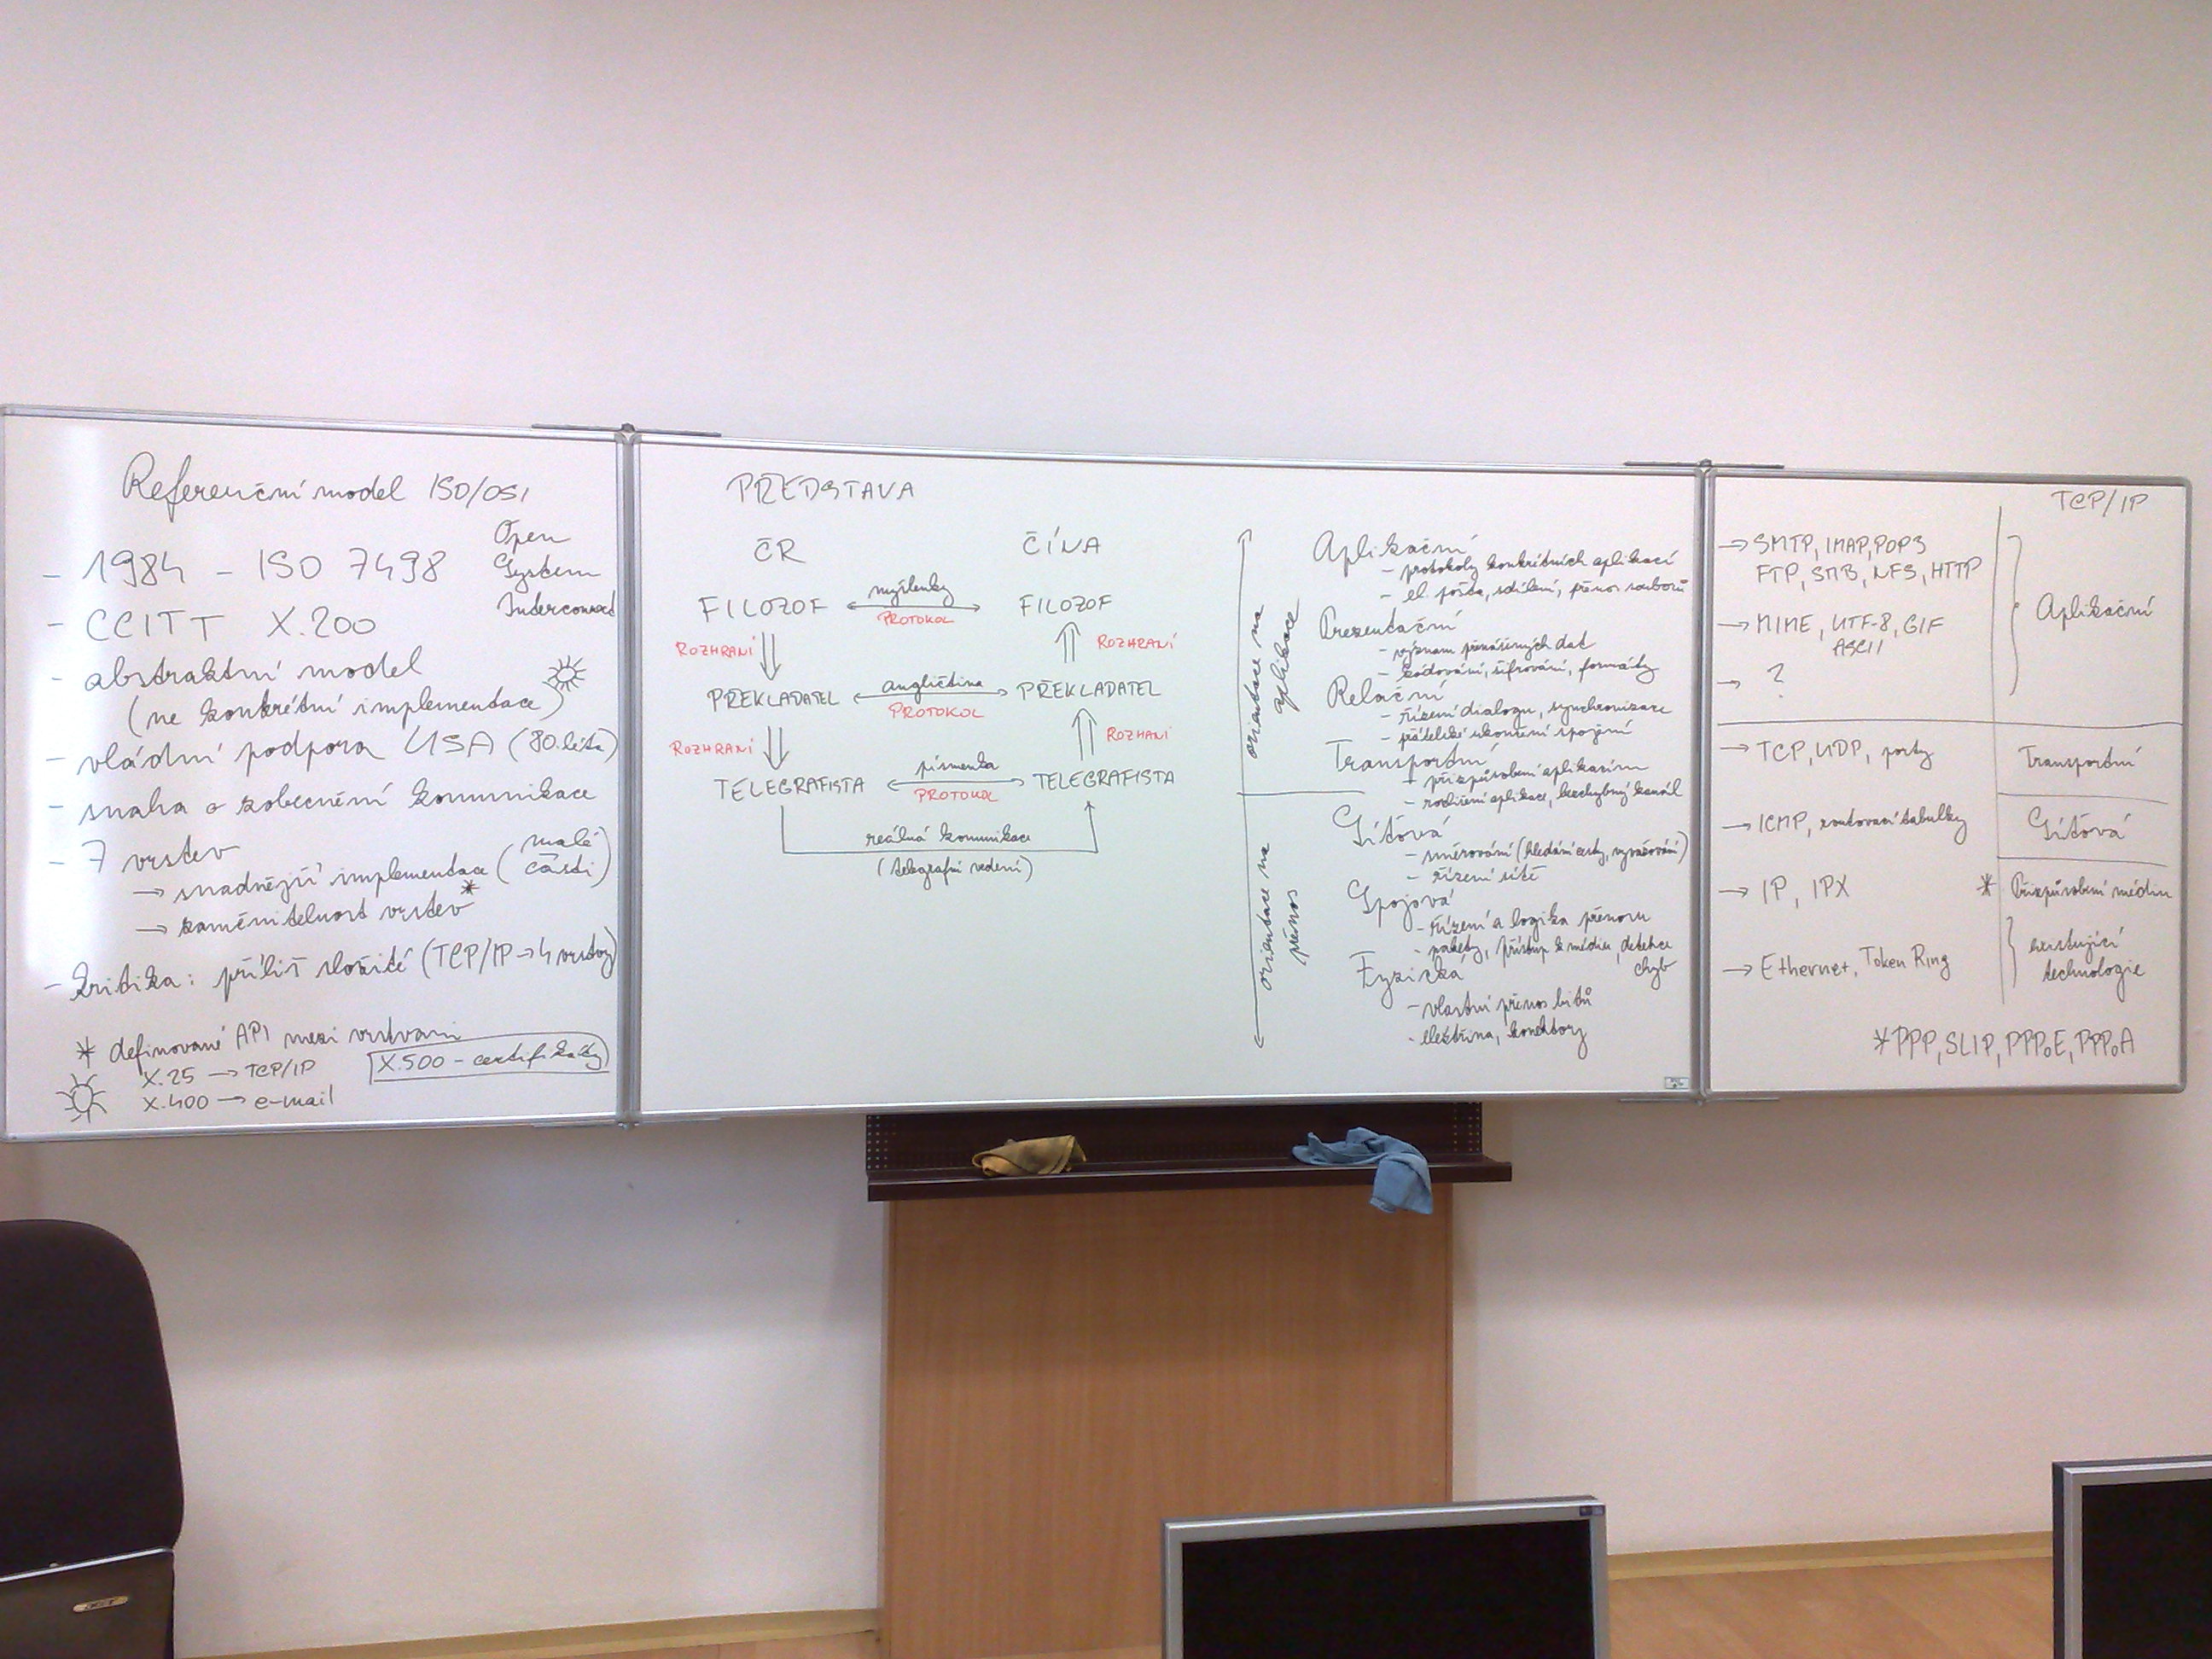 Referenční model ISO/OSI
Open
System
Interconnect
- 1984 - ISO 7498
- CCITT X.200
- abstraktní model
(ne konkrétní implementace)
- vládní podpora USA (80. léta)
- snaha o zobecnění komunikace
- 7 vrstev
→ snadnější implementace (malé části)
→ zaměnitelnost vrstev *
- kritika: příliš složité (TCP/IP → 4 vrstvy)
* definované API mezi vrstvami
X.25 → TCP/IP
X.400 → e-mail
X.500 - certifikáty
PŘEDSTAVA
ČR ČÍNA
FILOZOF myšlenky FILOZOF
PROTOKOL
ROZHRANÍ ROZHRANÍ
PŘEKLADATEL angličtina PŘEKLADATEL
PROTOKOL
ROZHRANÍ ROZHANÍ
TELEGRAFISTA písmenka TELEGRAFISTA
PROTOKOL
reálná komunikace
(telegrafní vedení)
orientace na
aplikace
orientace na
přenos
Aplikační
- protokoly konkrétních aplikací
- el. pošta, sdílení, přenos souborů
Prezentační
- význam přenášených dat
- kódování, šifrování, formáty
Relační
- řízení dialogu, synchronizace
- přátelské ukončení spojení
Transportní
- přizpůsobení aplikacím
- rozlišení aplikace, bezchybný kanál
Síťová
- směrování (hledání cesty, vyvažování)
- řízení sítě
Spojová
- řízení a logika přenosu
- pakety, přístup k médiu, detekce
chyb
Fyzická
- vlastní přenos bitů
- elektřina, konektory
TCP/IP
→ SMTP, IMAP, POP3
FTP, SMB, NFS, HTTP
→ MIME, UTF-8, GIF
ASCII
→ ?
Aplikační
→ TCP, UDP, porty
Transportní
→ ICMP, routovací tabulky
Síťová
→ IP, IPX
* Přizpůsobení médiu
→ Ethernet, Token Ring
existující
technologie
* PPP, SLIP, PPPoE, PPPoA
acer